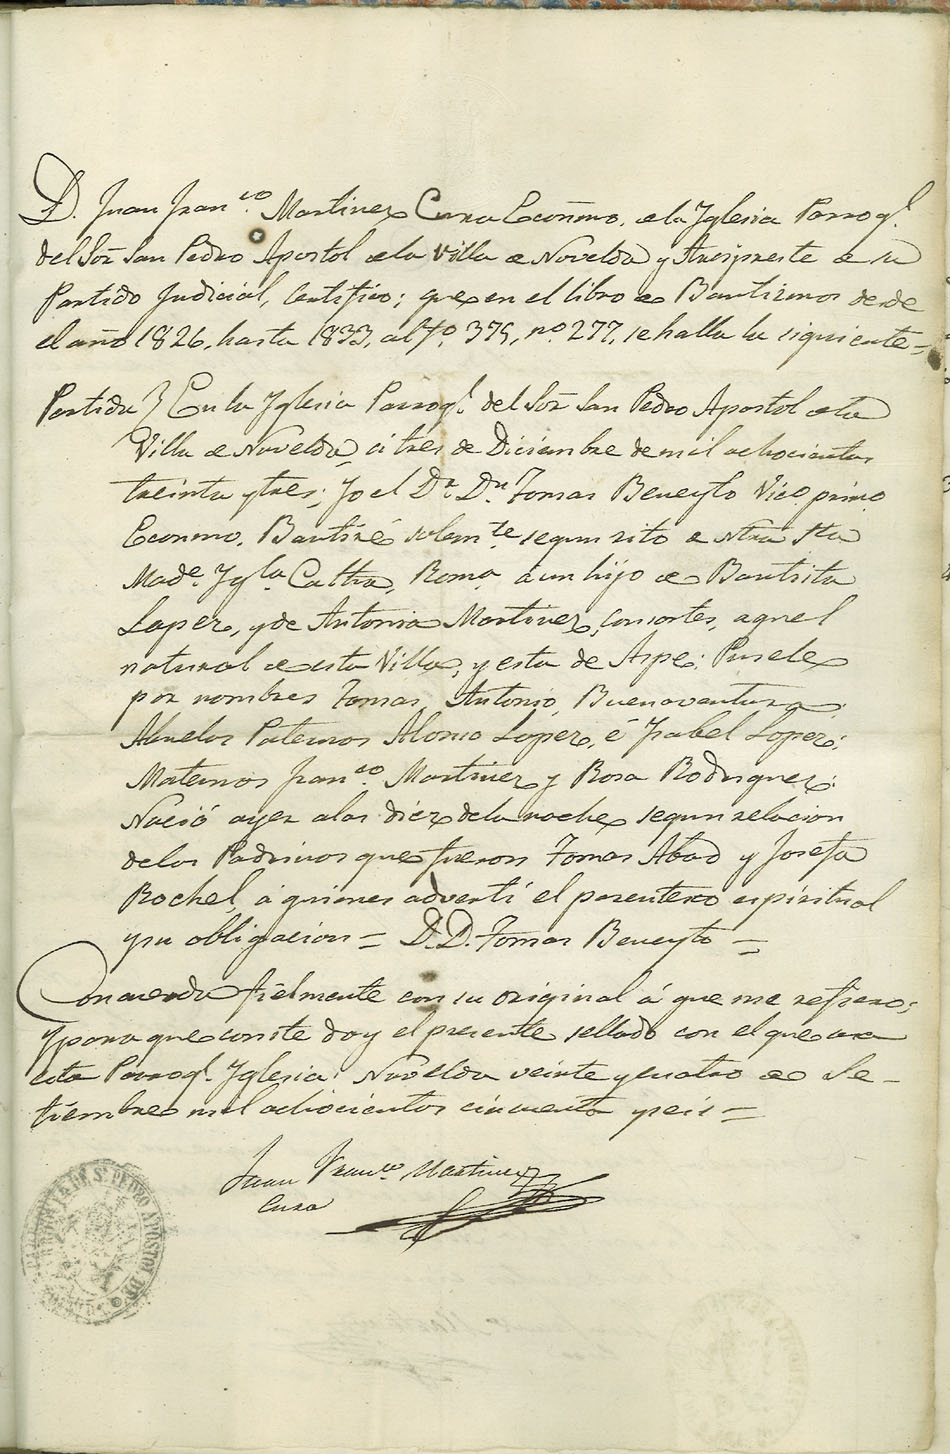 D. Juan Fran.co Martinez Cura Ecoñmo. de la Yglesia Parroq.l
del Sor. San Pedro Apostol de la Villa de Novelda y Arcipreste de su
Partido Judicial, Certifico; que en el libro de Bautizmos desde
el año 1826, hasta 1833, al fo. 375, no. 277, se halla la siguiente=
Partida} En la Yglesia Parroq.l del Sor. San Pedro Apostol de la
Villa de Novelda, á tres de Diciembre de mil achocientos
treinta y tres; Yo el Dr. Dn. Tomas Beneyto Vico. primo
Econmo. Bautizé solem.te segun rito de ntra Sta
Made. Ygla. Cathca. Roma. á un hijo de Bautista
Lopez, y de Antonia Martinez, consortes, aquel
natural de esta Villa, y esta de Aspe; Pusele
por nombres Tomas, Antonio, Buenaventura;
Abuelos Paternos Alonso Lopez, é Ysabel Lopez;
Maternos Fran.co Martinez y Rosa Rodriguez:
Nació ayer a las diez de la noche segun relacion
de los Padrinos que fueron Tomas Abad y Josefa
Rochel, á quienes advertí el parentesco espiritual
y su obligacion = D. D. Tomas Beneyto =
Concuerda fielmente con su original á que me refiero;
Y para que conste doy el presente sellado con el que usa
esta Parroq.l Yglesia: Novelda veinte y cuatro de Se-
tiembre mil achocientos cincuenta y seis =
Juan Fran.co Martinez
Cura
PARROQUIA DE Sn. PEDRO APOSTOL DE